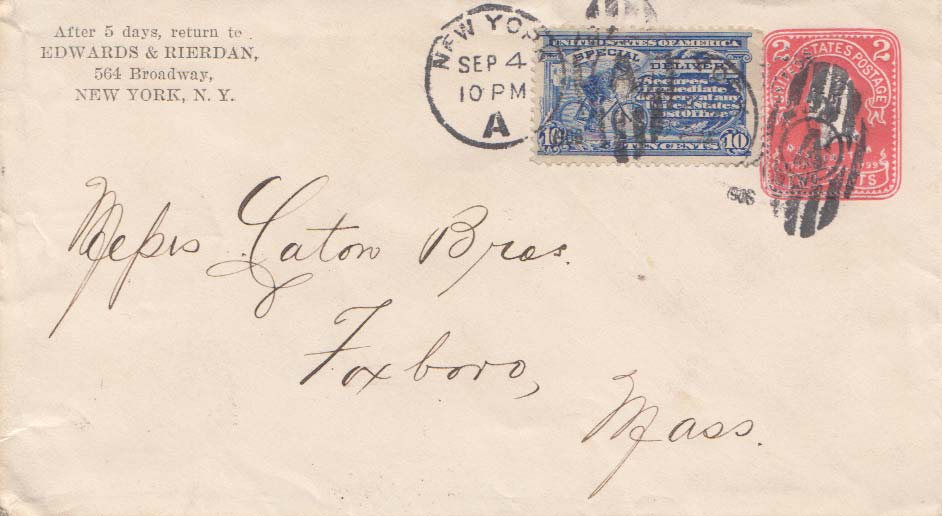 After 5 days, return to
EDWARDS & RIERDAN,
564 Broadway,
NEW YORK, N. Y.
NEW YORK
SEP 4
10 PM
A
UNITED STATES OF AMERICA
SPECIAL DELIVERY
Secures
immediate
delivery at any
United States
Post Office
10 TEN CENTS 10
2 UNITED STATES POSTAGE 2
Messrs Eaton Bros.
Foxboro,
Mass.